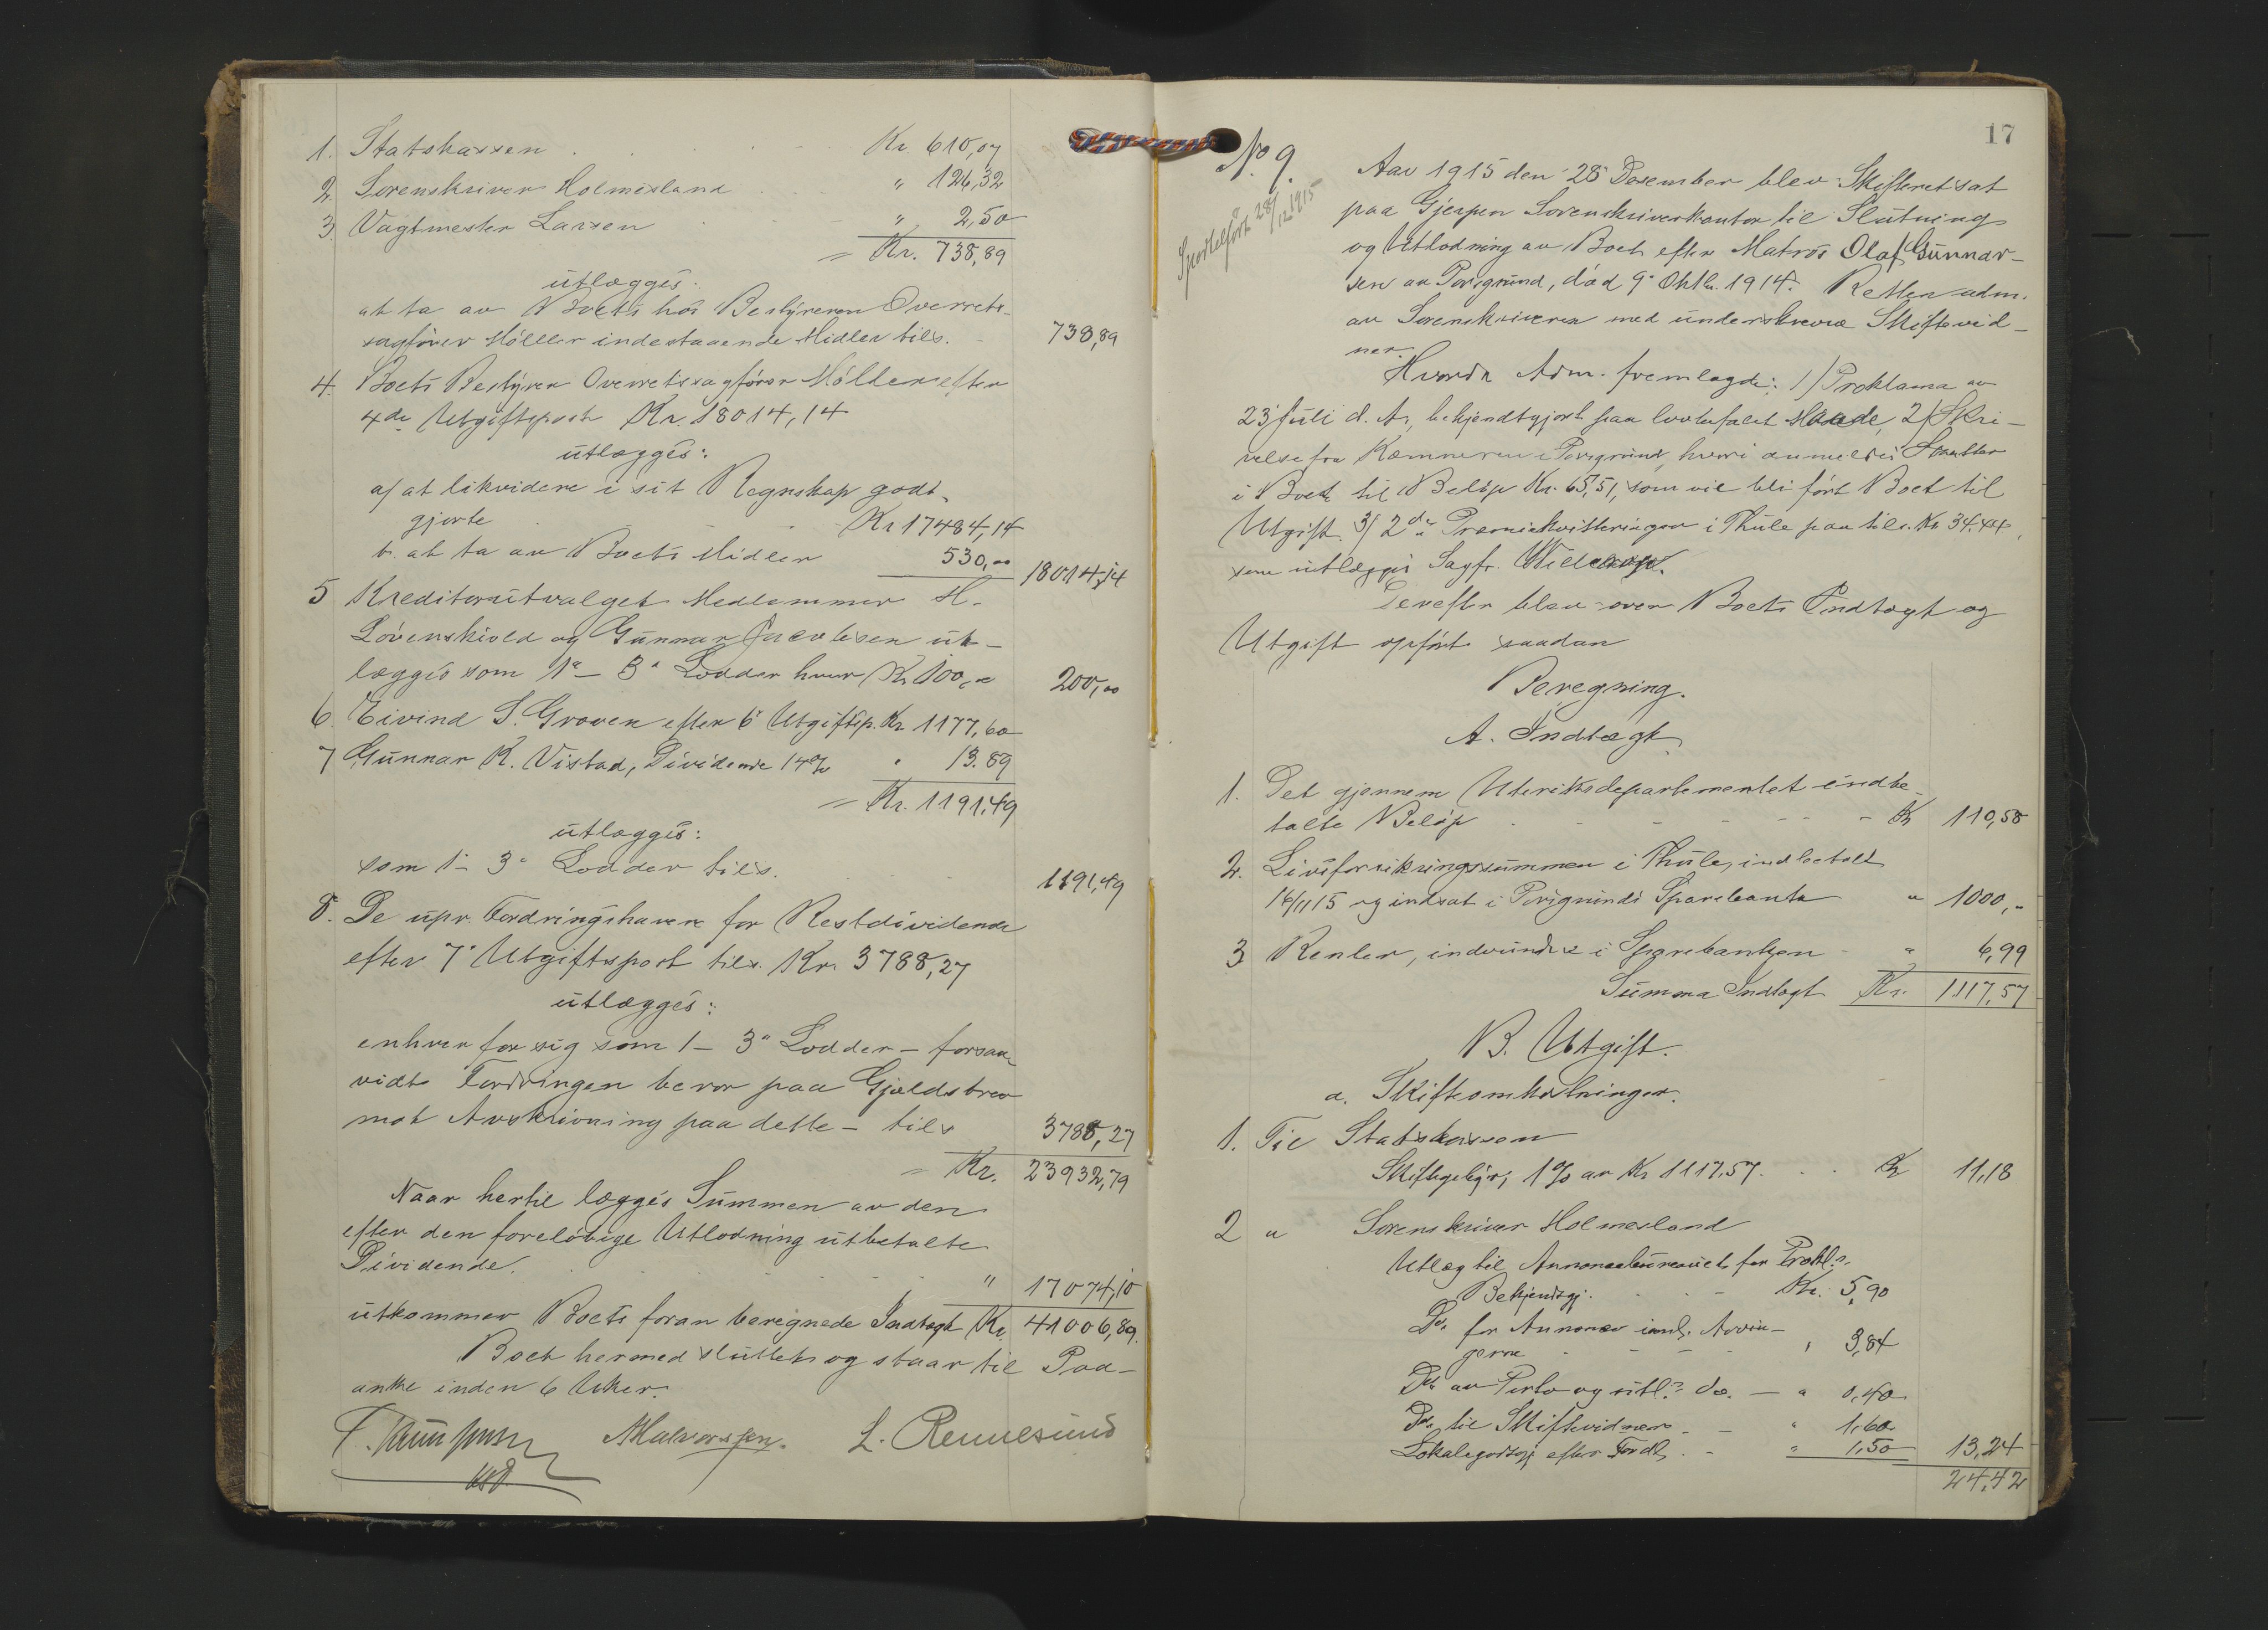 1. Statskassen Kr 610,07
2. Sorenskriver Holmesland " 126,32
3. Vagtmester Larsen " 2,50
= Kr. 738,89
utlægges
at ta av Boets hos Bestyreren Overrets-
sagfører Møller indestaaende Midler tils. 738,89
4. Boets Bestyrer Overretssagfører Møller efter
4de Utgiftspost Kr. 18014,14
utlægges:
a/ at likvidere i sit Regnskap godt-
gjorte Kr 17484,14
b. at ta av Boets Midler 530,00 18014,14
5 Kreditorutvalgets Medlemmer H.
Løvenskiold og Gunnar Jacobsen ut-
lægges som 1e - 3e Lodder hver Kr 100,00 200,00
6. Eivind S. Graven efter 6e Utgiftsp. Kr 1177,60
7 Gunnar K. Vistad, Dividende 14% " 13.89
= Kr. 1191,49
utlægges:
som 1 - 3e Lodder tils. 1191,49
8. De upr. Fordringshavere for Restdividende
efter 7e Utgiftspost tils. Kr. 3788,27
utlægges:
enhver for sig som 1 - 3e Lodder - forsaa-
vidt Fordringen beror paa Gjældsbrev
mot Avskrivning paa dette - tils 3788,27
= Kr. 23932,79
Naar hertil lægges Summen av den
efter den foreløbige Utlodning utbetalte
Dividende. " 17074,10
utkommer Boets foran beregnede Indtægt Kr. 41006,89.
Boet hermed sluttet og staar til Paa-
anke inden 6 Uker.
L. Rennesund
17
No 9.
Sportelført 28/12 1915
Aar 1915 den 28 Desember blev Skifteret sat
paa Gjerpen Sorenskriverkontor til Slutning
og Utlodning av Boet efter Matros Olaf Gunnar-
sen av Porsgrund, død 9. Oktbr. 1914. Retten adm.
av Sorenskriveren med underskrevne Skiftevid-
ner.
Hvorda Adm. fremlagde: 1/ Proklama av
23 Juli d. A., bekjendtgjort paa lovbefalet Maade, 2/ Skri-
velse fra Kæmneren i Porsgrund, hvori anmeldes Skatter
i Boet til Beløp Kr. 65,51, som vil bli ført Boet til
Utgift. 3/ 2de Præmiekvitteringer i Thule paa tils. Kr 34.44,
som utlægges Sagfr.
Derefter blev over Boets Indtægt og
Utgift opført saadan
Beregning.
A. Indtægt
1. Det gjennem Utenriksdepartementet indbe-
talte Beløp Kr 110,58
2. Livsforsikringssummen i Thule, indbetalt
16/11 15 og indsat i Porsgrunds Sparebank " 1000,-
3 Renter, indvundne i Sparebanken " 6,99
Summa Indtægt Kr. 1117,57
B. Utgift.
a. Skifteomkostninger.
1. Til Statskassen
Skiftegebyr, 1% av Kr 1117,57. Kr 11,18
2 " Sorenskriver Holmesland
Utlæg til Annoncebureauet for Prokl.s
Bekjendtgj. Kr. 5,90
Do. for Annonce i
" 3,84
Do. av Porto og utl. do. - " 0,40
Do. til Skiftevidner - " 1,60
Lokalegodtgj. efter Fordl. " 1,50 13,24
24,42